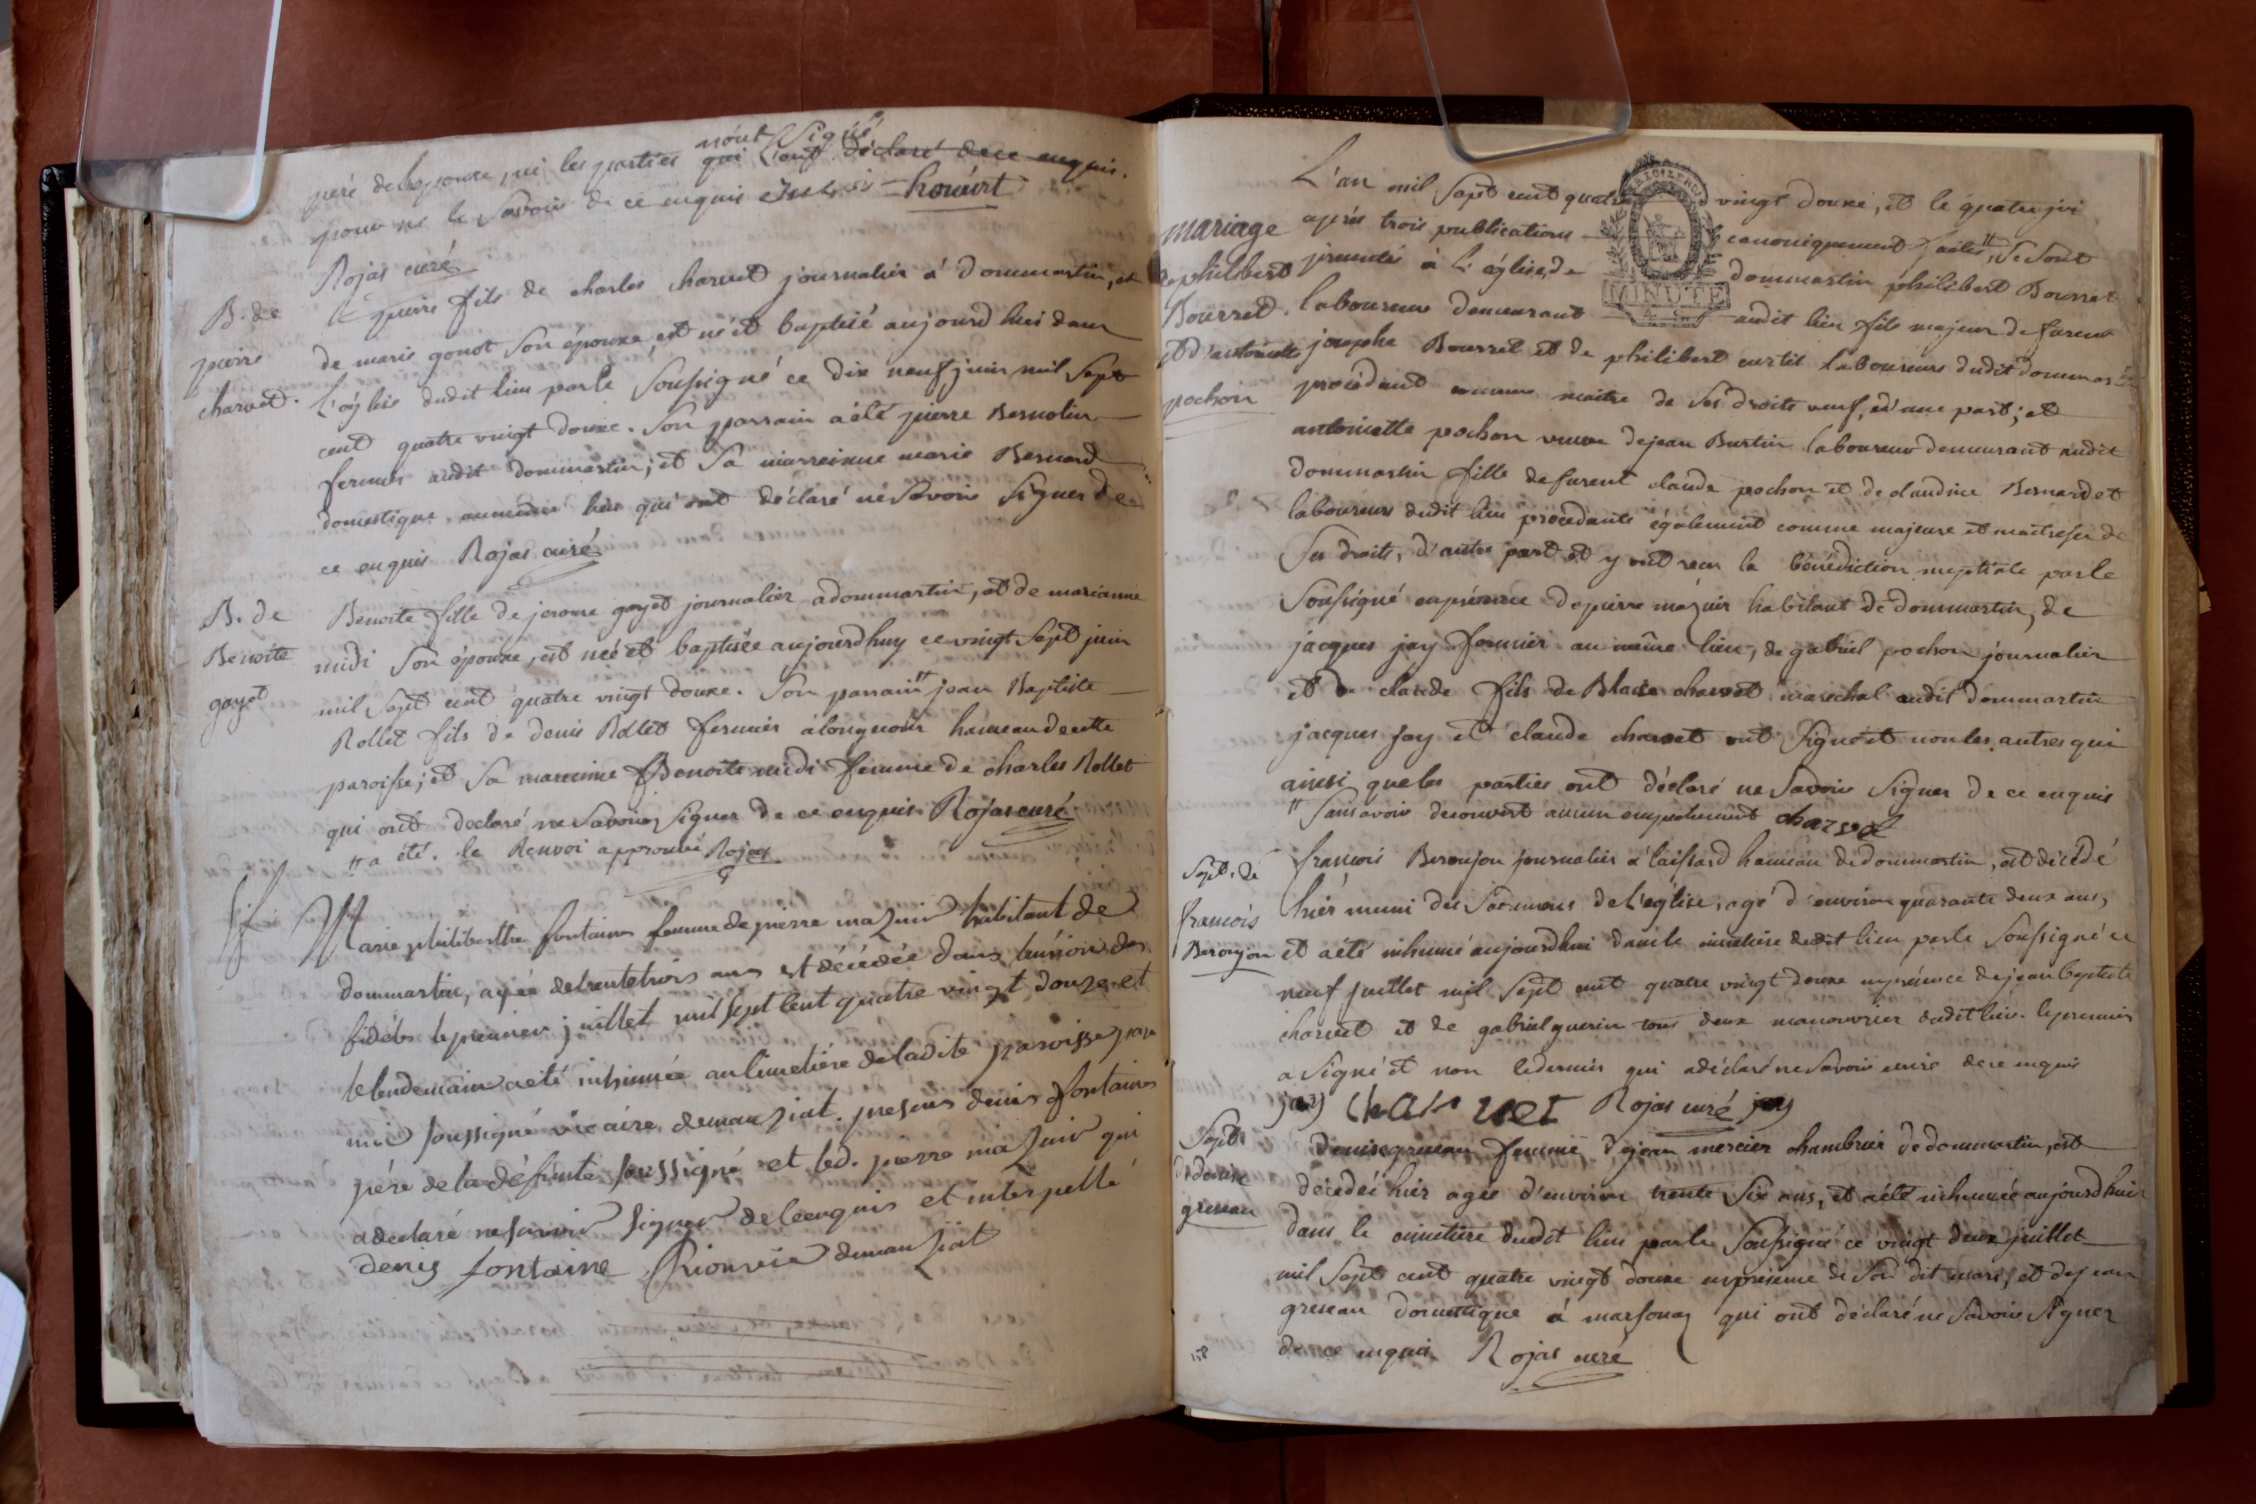 n'ont signé
peré de lepouxe, ni les parties qui ont declaré de ce enquis.
pour ne le Savoir de ce enquis houërt
Rojas curé
B. de
pierre
charvet.
pierre fils de charles charvet journalier à dommartin, et
de marie gonot Son épouxe, est né et baptisé aujourd'hui dans
L'église dudit lieu par le Soussigné ce dix neuf juin mil Sept
cent quatre vingt douxe. Son parrain a été pierre Bernolin
fermier audit dommartin; et Sa marreinne marie Bernard
domestique au même lieu qui ont déclaré ne Savoir Signer de
ce enquis Rojas curé
B. de
Benoite
goyot
Benoite fille de jerome goyot journalier a dommartin, et de marianne
midi Son épouxe, est née et baptisée aujourdhuy ce vingt Sept juin
mil Sept cent quatre vingt douxe. Son parrain # jean Baptiste
Rollet fils de denis Rollet fermier à hameau de cette
paroisse; et Sa marreinne Benoite midi femme de charles Rollet
qui ont declaré ne Savoir Signer de ce enquis Rojas curé
# a été. le Renvoi approuvé Rojas
Marie philiberthe fontaine femme de pierre mazuir habitant de
dommartin, agée de trente trois ans est décédée dans lunion des
fidéles le premier juillet mil sept cent quatre vingt douze et
le lendemain a été inhumée au cimetiére de ladite paroisse par
moi soussigné vicaire de manziat. presens denis fontaine
pére de la défunte soussigné et led. pierre mazuir qui
a declaré ne savoir signer de ce enquis et interpellé
denis fontaine Rion vic. de manziat
mariage
de philibert
Bourret
et d'antoinette
pochon
L'an mil Sept cent quatre vingt douxe, et le quatre jui
après trois publications canoniquement faites #, Se Sont
presentés à L'église de dommartin philibert Bourret
MINUTE
laboureur demeurant audit lieu fils majeur de furent
josephe Bourret et de philibert curtil laboureurs dudit dommartin
procédant comme maitre de Ses droits veuf, d'une part; et
antoinette pochon veuve de jean Burtin laboureur demeurant audit
dommartin fille de furent claude pochon et de claudine Bernardet
laboureurs dudit lieu procedante également comme majeure et maitresse de
Ses droits, d'autre part et y ont reçu la bénédiction nuptiale par le
Soussigné en présence de pierre mazuir habitant de dommartin, de
jacques jay fermier au même lieu, de gabriel pochon journalier
et de claude fils de Blaise charvet marechal audit dommartin
jacques jay et claude charvet ont Signé et non les autres qui
ainsi que les parties ont déclaré ne Savoir Signer de ce enquis
# Sans avoir decouvert aucun empechement charvet
Sept. de
francois
Beroujon
françois Beroujon journalier à laissard hameau de dommartin, est décédé
hier muni des Sacremens de L'église, agé d'environ quarante deux ans,
et a été inhumé aujourdhui dans le cimetiere dudit lieu par le Soussigné ce
neuf juillet mil Sept cent quatre vingt douxe en présence de jean baptiste
charvet et de gabriel guerin tous deux manouvrier dudit lieu. le premier
a Signé et non le dernier qui a déclaré ne Savoir ecrire de ce enquis
jay charvet Rojas curé jay
Sept.
de denise
greneau
denise greneau femme de jean mercier chambrier de dommartin, est
décedée hier agée d'environ trente Six ans, et a été inhumée aujourdhui
dans le cimetiere dudit lieu par le Soussigné ce vingt deux juillet
mil Sept cent quatre vingt douxe en présence de Son dit mari, et de jean
greneau domestique à marsonaz qui ont déclaré ne Savoir Signer
de ce enquis Rojas curé